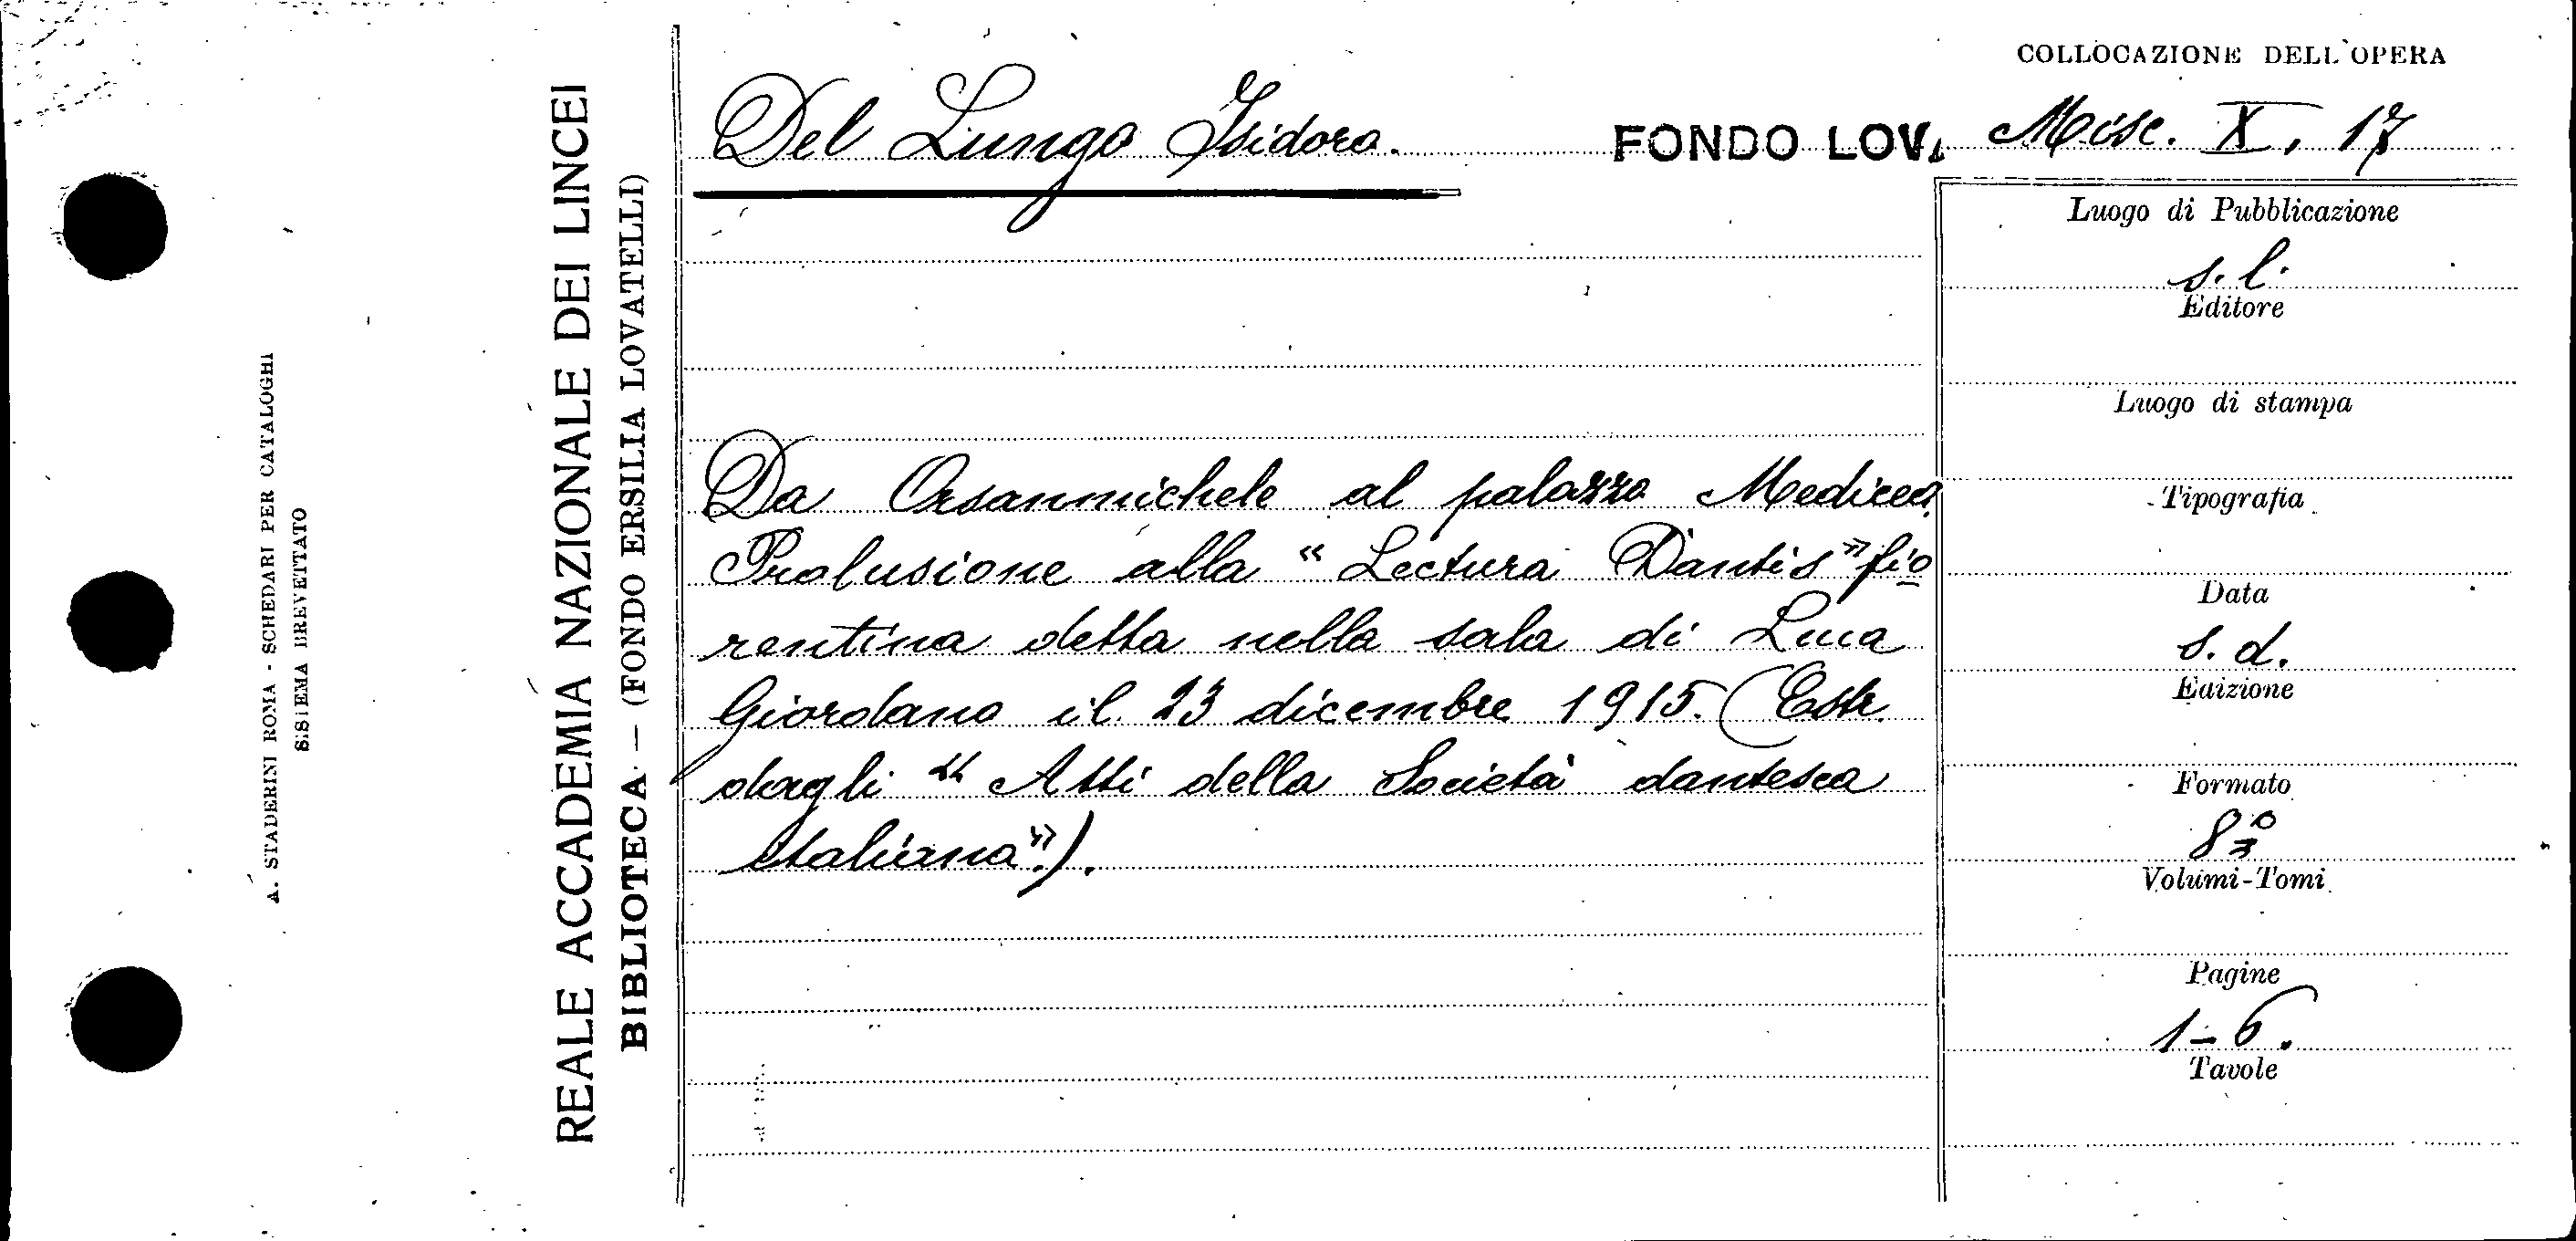 A. STADERINI ROMA - SCHEDARI PER CATALOGHI
SISTEMA BREVETTATO
REALE ACCADEMIA NAZIONALE DEI LINCEI
BIBLIOTECA — (FONDO ERSILIA LOVATELLI)
Del Lungo Isidoro.
Da Orsanmichele al palazzo Mediceo.
Prolusione alla "Lectura Dantis" fio
rentina detta nella sala di Luca
Giordano il 23 dicembre 1915. (Estr.
dagli "Atti della Società dantesca
italiana").
COLLOCAZIONE DELL'OPERA
FONDO LOV. Misc. X, 17
Luogo di Pubblicazione
s. l.
Editore
Luogo di stampa
Tipografia
Data
s. d.
Edizione
Formato
8°
Volumi-Tomi
Pagine
1-6.
Tavole